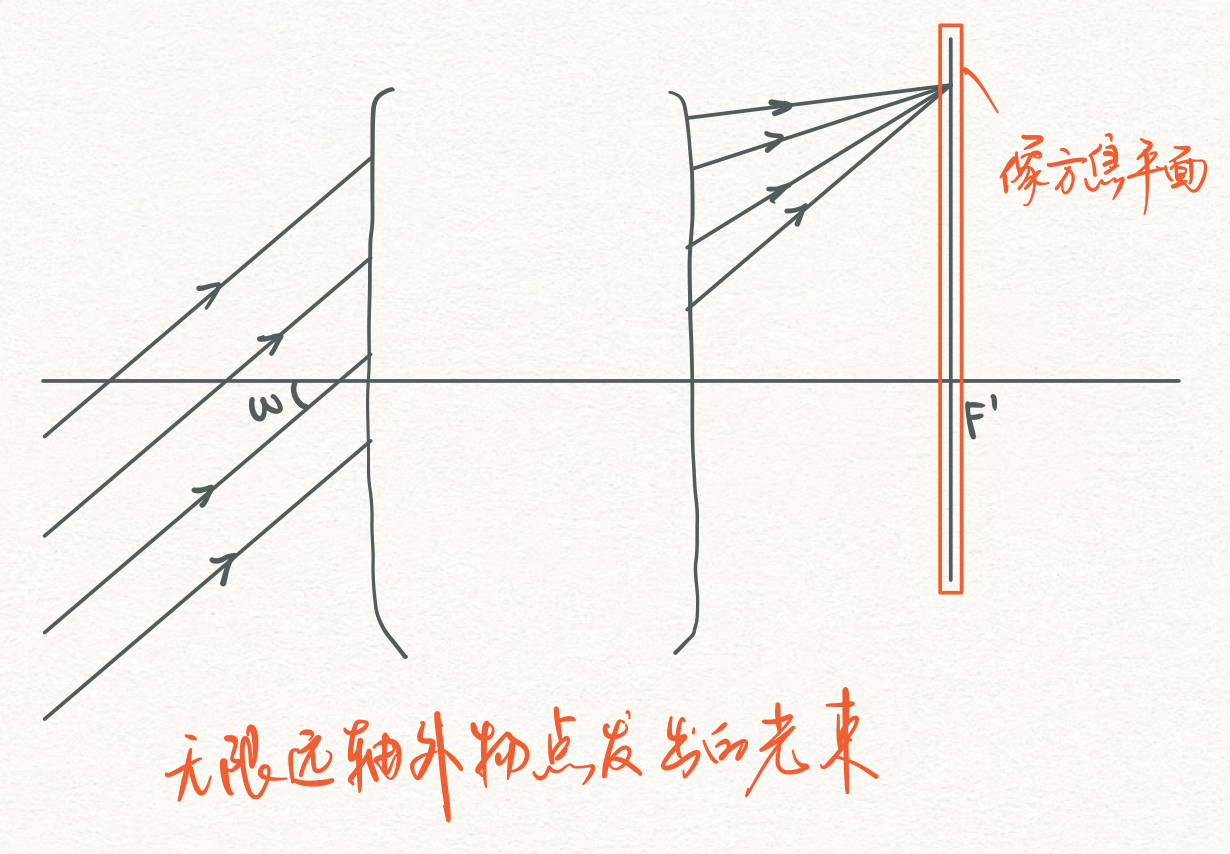 像方焦平面
ω
F'
无限远轴外物点发出的光束